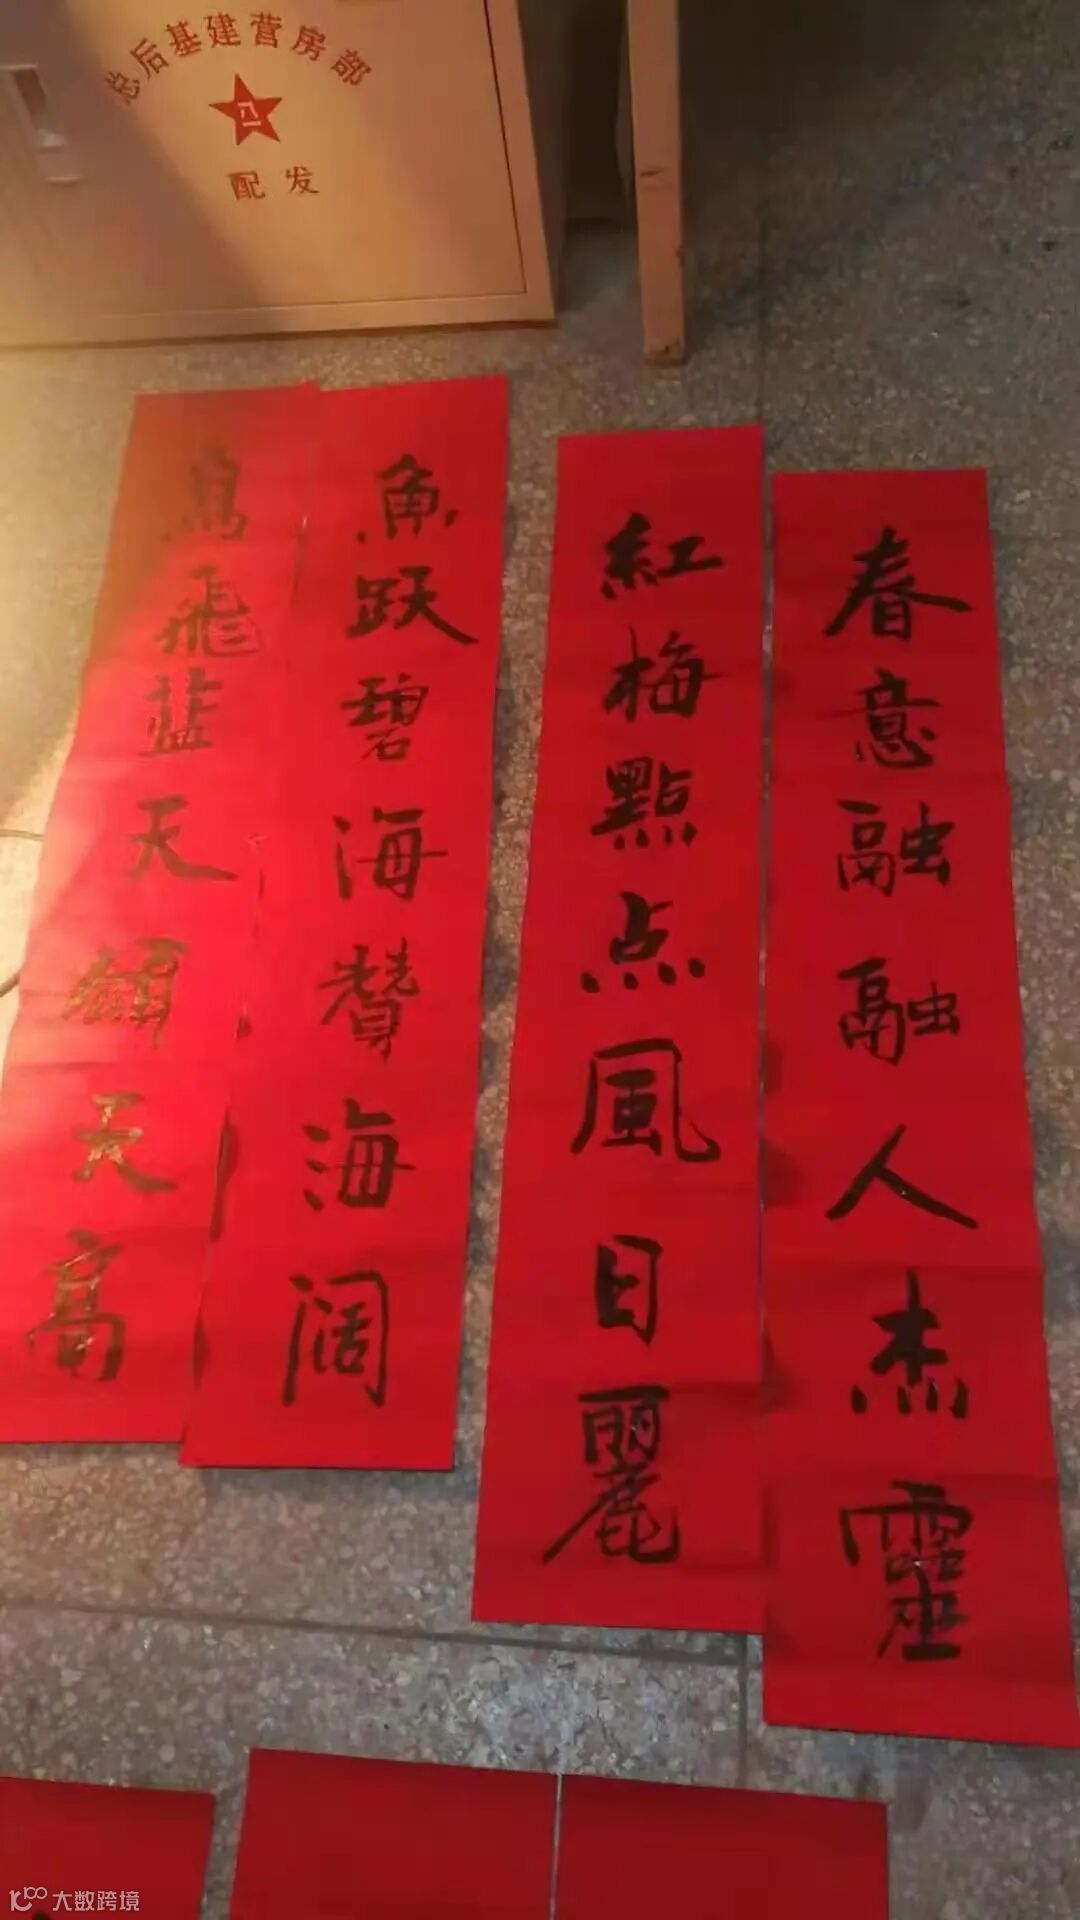 总后基建营房部
八一
配发
春意融融人杰靈
紅梅點点風日麗
魚跃碧海贊海阔
鳥飛蓝天天高
大数跨境